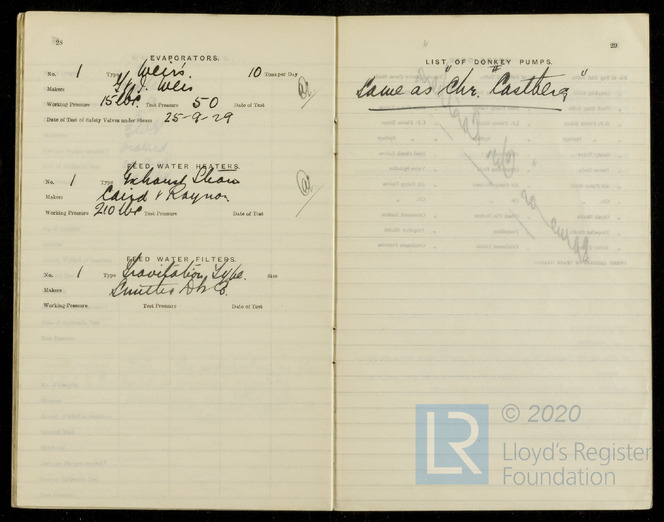 28
EVAPORATORS.
No. 1 Type Weir's. 10 Tons per Day
Makers G. & J. Weir
Working Pressure 15 Test Pressure 50 Date of Test
Date of Test of Safety Valves under Steam 25-9-29
FEED WATER HEATERS.
No. 1 Type Exhaust Steam
Makers Caird & Raynor
Working Pressure 210 Test Pressure Date of Test
FEED WATER FILTERS.
No. 1 Type Gravitation Type. Size
Makers Co.
Working Pressure Test Pressure Date of Test
29
LIST OF DONKEY PUMPS.
Same as "Chr. Castberg"
LR
© 2020
Lloyd's Register
Foundation